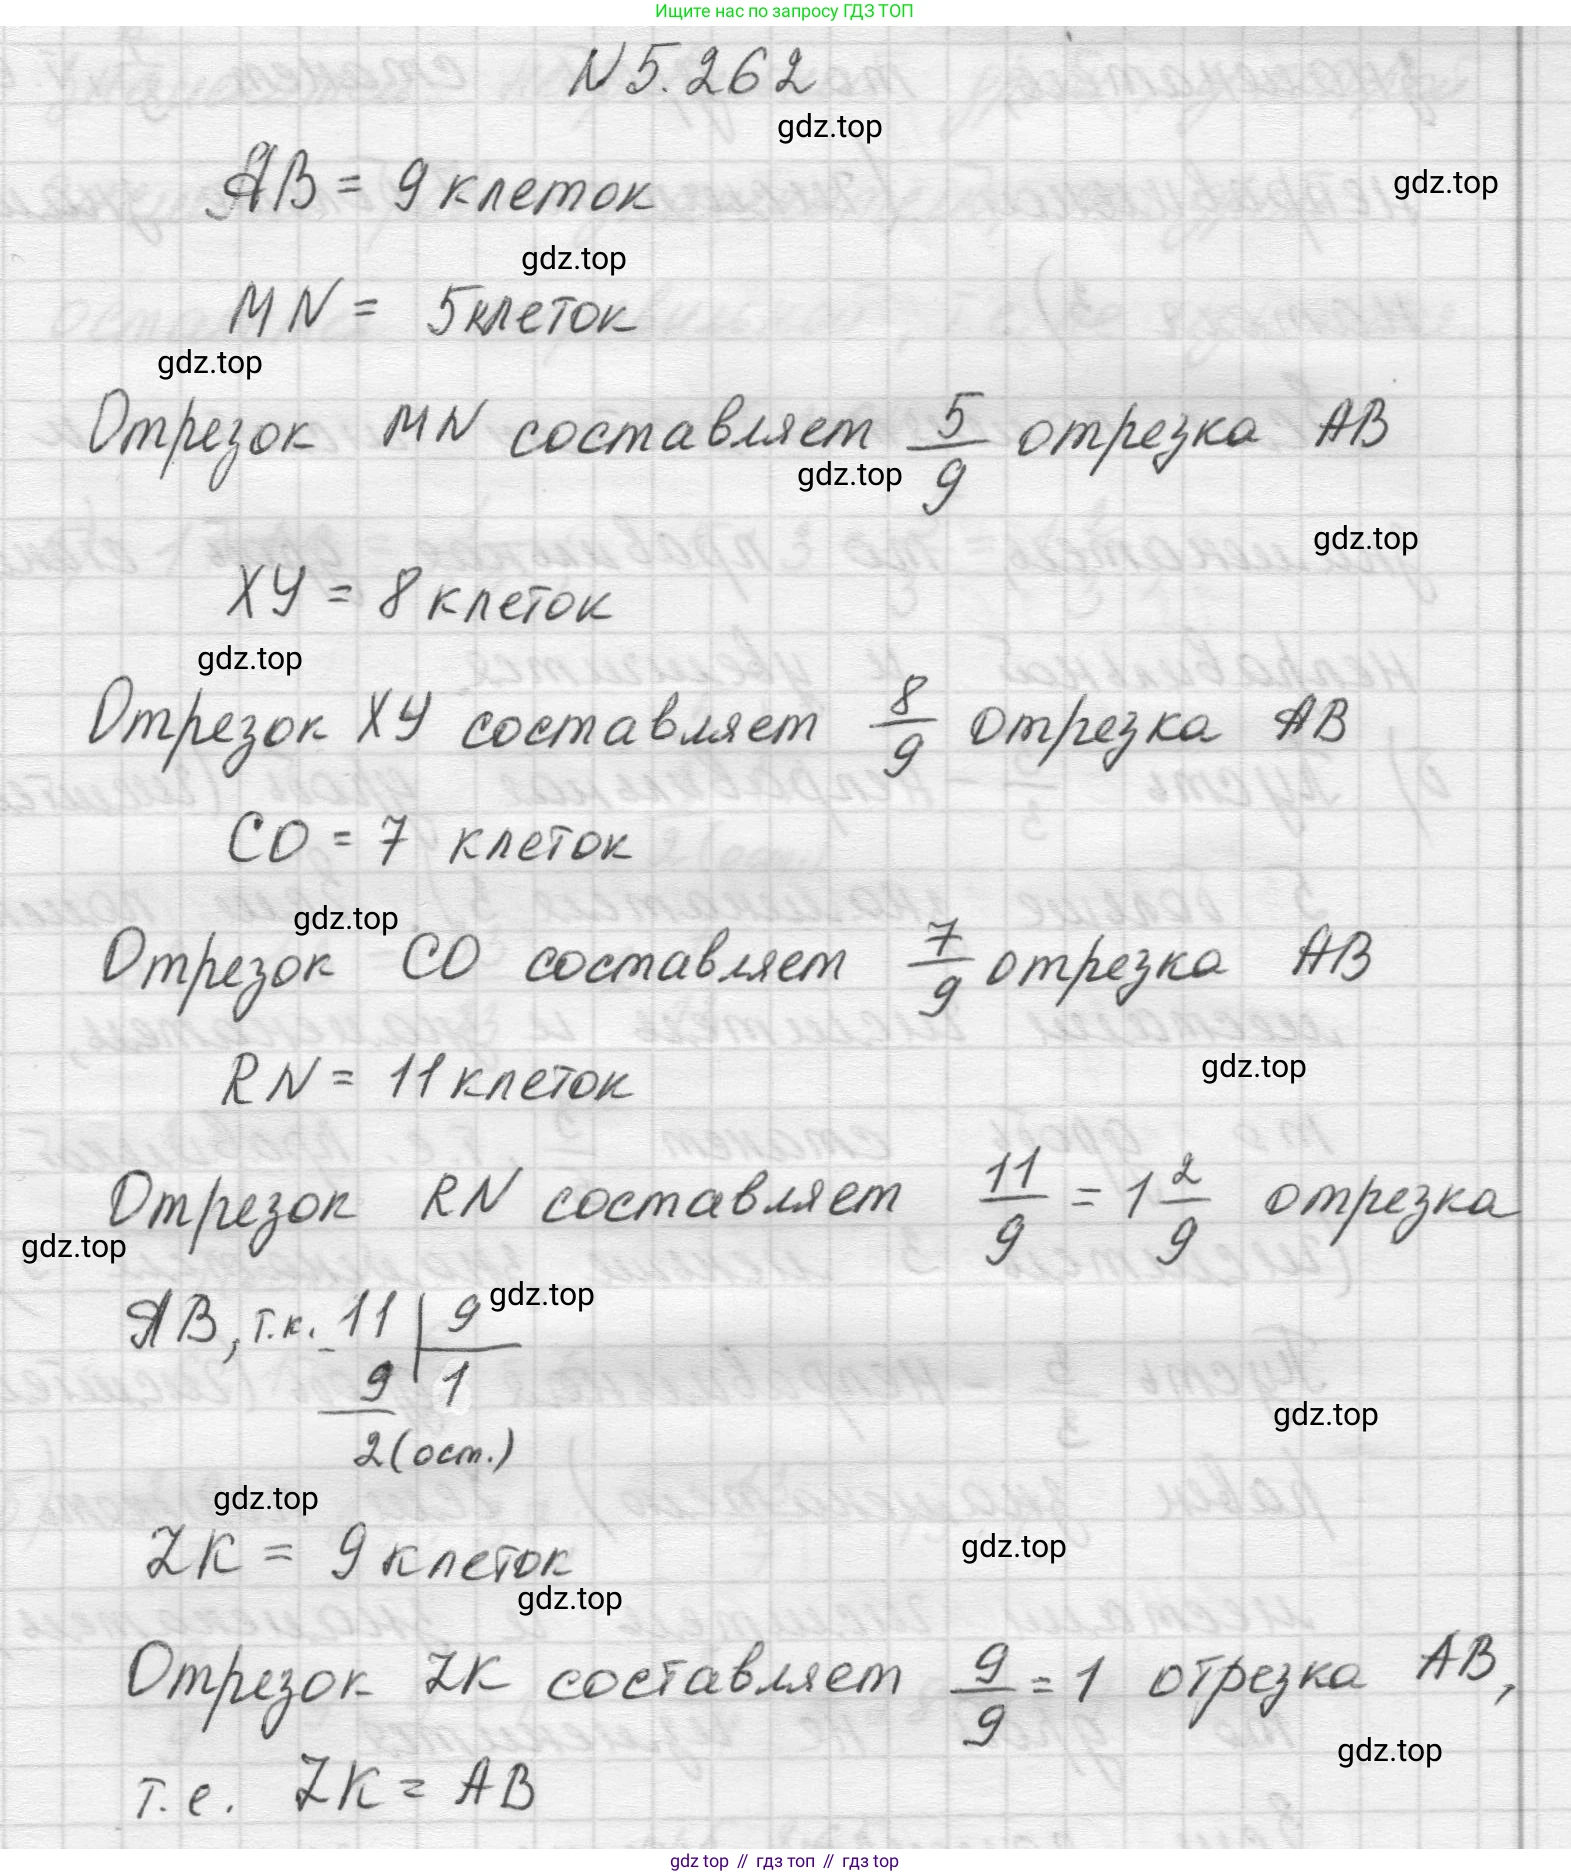 Ищите нас по запросу ГДЗ ТОП
N 5.262
gdz.top
AB = 9 клеток
gdz.top
gdz.top
MN = 5 клеток
gdz.top
Отрезок MN составляет 5/9 отрезка AB
gdz.top
gdz.top
XY = 8 клеток
gdz.top
Отрезок XY составляет 8/9 отрезка AB
CD = 7 клеток
gdz.top
Отрезок CD составляет 7/9 отрезка AB
RN = 11 клеток
gdz.top
Отрезок RN составляет 11/9 = 1 2/9 отрезка
gdz.top
AB, т.к. 11 | 9
gdz.top
- 9 | 1
2 (ост.)
gdz.top
gdz.top
ZK = 9 клеток
gdz.top
gdz.top
Отрезок ZK составляет 9/9 = 1 отрезка AB,
gdz.top
т.е. ZK = AB
gdz top // гдз топ // гдз top